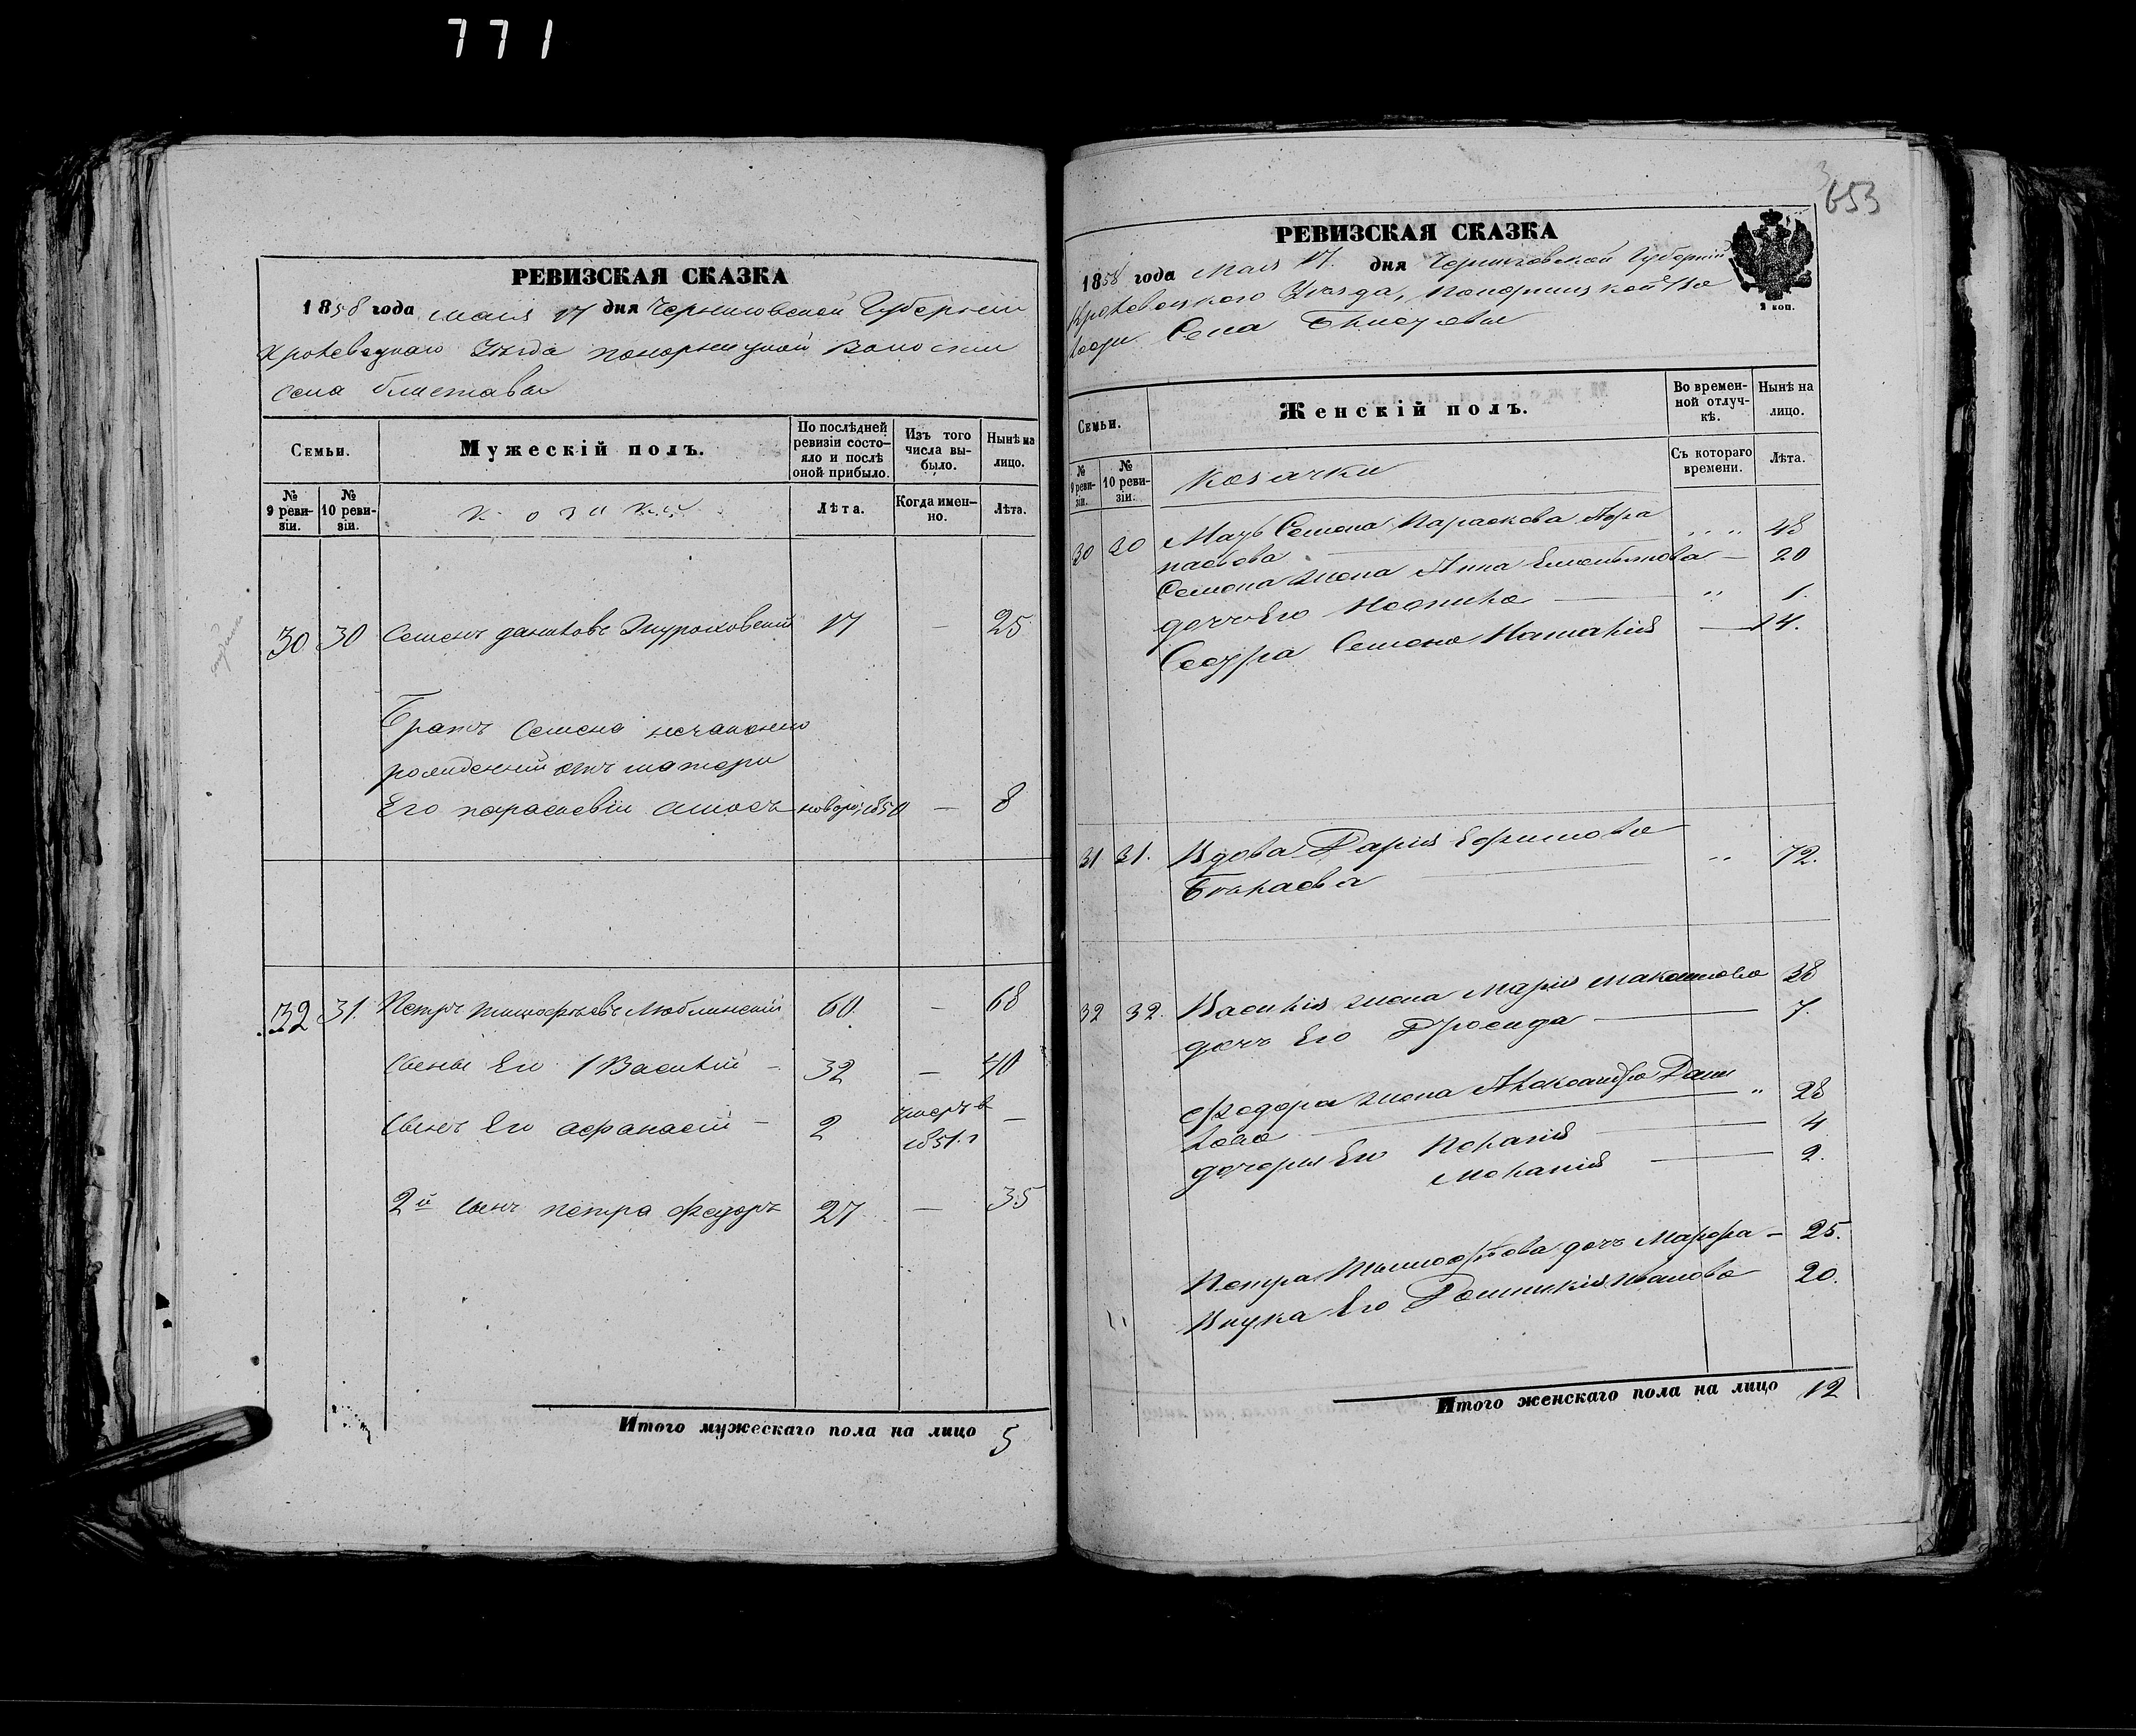 771
РЕВИЗСКАЯ СКАЗКА
1858 года мая 17 дня Черниговской Губернiи
Кролевецкаго Уѣзда понорницкой Волости
села блистова
Семьи.
Мужескій полъ.
По послѣдней ревизіи состояло и послѣ оной прибыло.
Изъ того числа выбыло.
Нынѣ на лицо.
№ 9 ревизіи.
№ 10 ревизіи.
козаки
Лѣта.
Когда именно.
Лѣта.
30 30 Семенъ даниловъ 17 — 25
Братъ Семена нечаянно
рожденный отъ матери
Его параскевіи амосъ новор: 1850 — 8
32 31. Петръ тимофѣевъ Люблинскій 60. — 68
Сыны Его 1 Василій — 32 — 40
Сынъ Его афанасій — 2 умеръ в 1851. г —
2й сынъ петра Федоръ 27 — 35
Итого мужескаго пола на лицо 5
653
РЕВИЗСКАЯ СКАЗКА
1858 года Мая 17. дня Черниговской Губерніи
Кролевецкого Уѣзда, Понорницкой Во
лости Села
2 коп.
Семьи.
Женскій полъ.
Во временной отлучкѣ.
Нынѣ на лицо.
№ 9 ревизіи.
№ 10 ревизіи.
козачки
Съ котораго времени.
Лѣта.
30 30 Мать Семена Параскева Афа
насьева „ „ 48
Семена жена Анна Емельянова — 20
дочь Его „ 1.
Сестра Семена Наталія — 14.
31 31. Вдова Дарія Ефимова
„ 72.
32 32. Василія жена Марія 38
дочь Его — 7.
Федора жена Александра Дани
лова „ 28
дочери Его Пелагія — 4
Меланія — 2.
Петра Тимофѣева дочь Марфа — 25.
Внука Его Иванова 20.
Итого женскаго пола на лицо 12